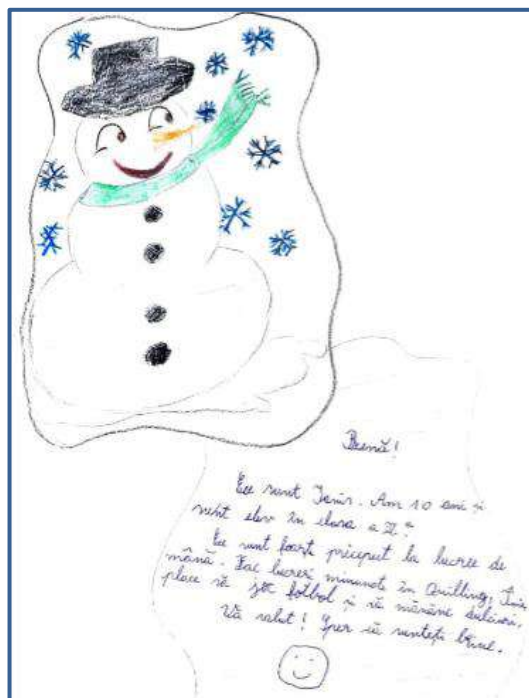 Bună!
Eu sunt Ianis. Am 10 ani și
sunt elev în clasa a
Eu sunt foarte priceput la lucru de
mână. Fac lucrări minunate în Quilling. Îmi
place să joc fotbol și să mănânc dulciuri.
Vă salut! Sper că sunteți bine.